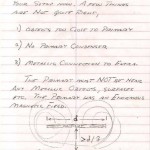 Your Setup Now. A Few Things
Are Not Quite Right.
1) Objects too Close to Primary
2) No Primary Condenser
3) Metallic Connection to Extra.
The Primary must NOT be near
Any Metallic Objects, surfaces
etc. The Primary has an Enormous
Magnetic Field.
d
>d/2